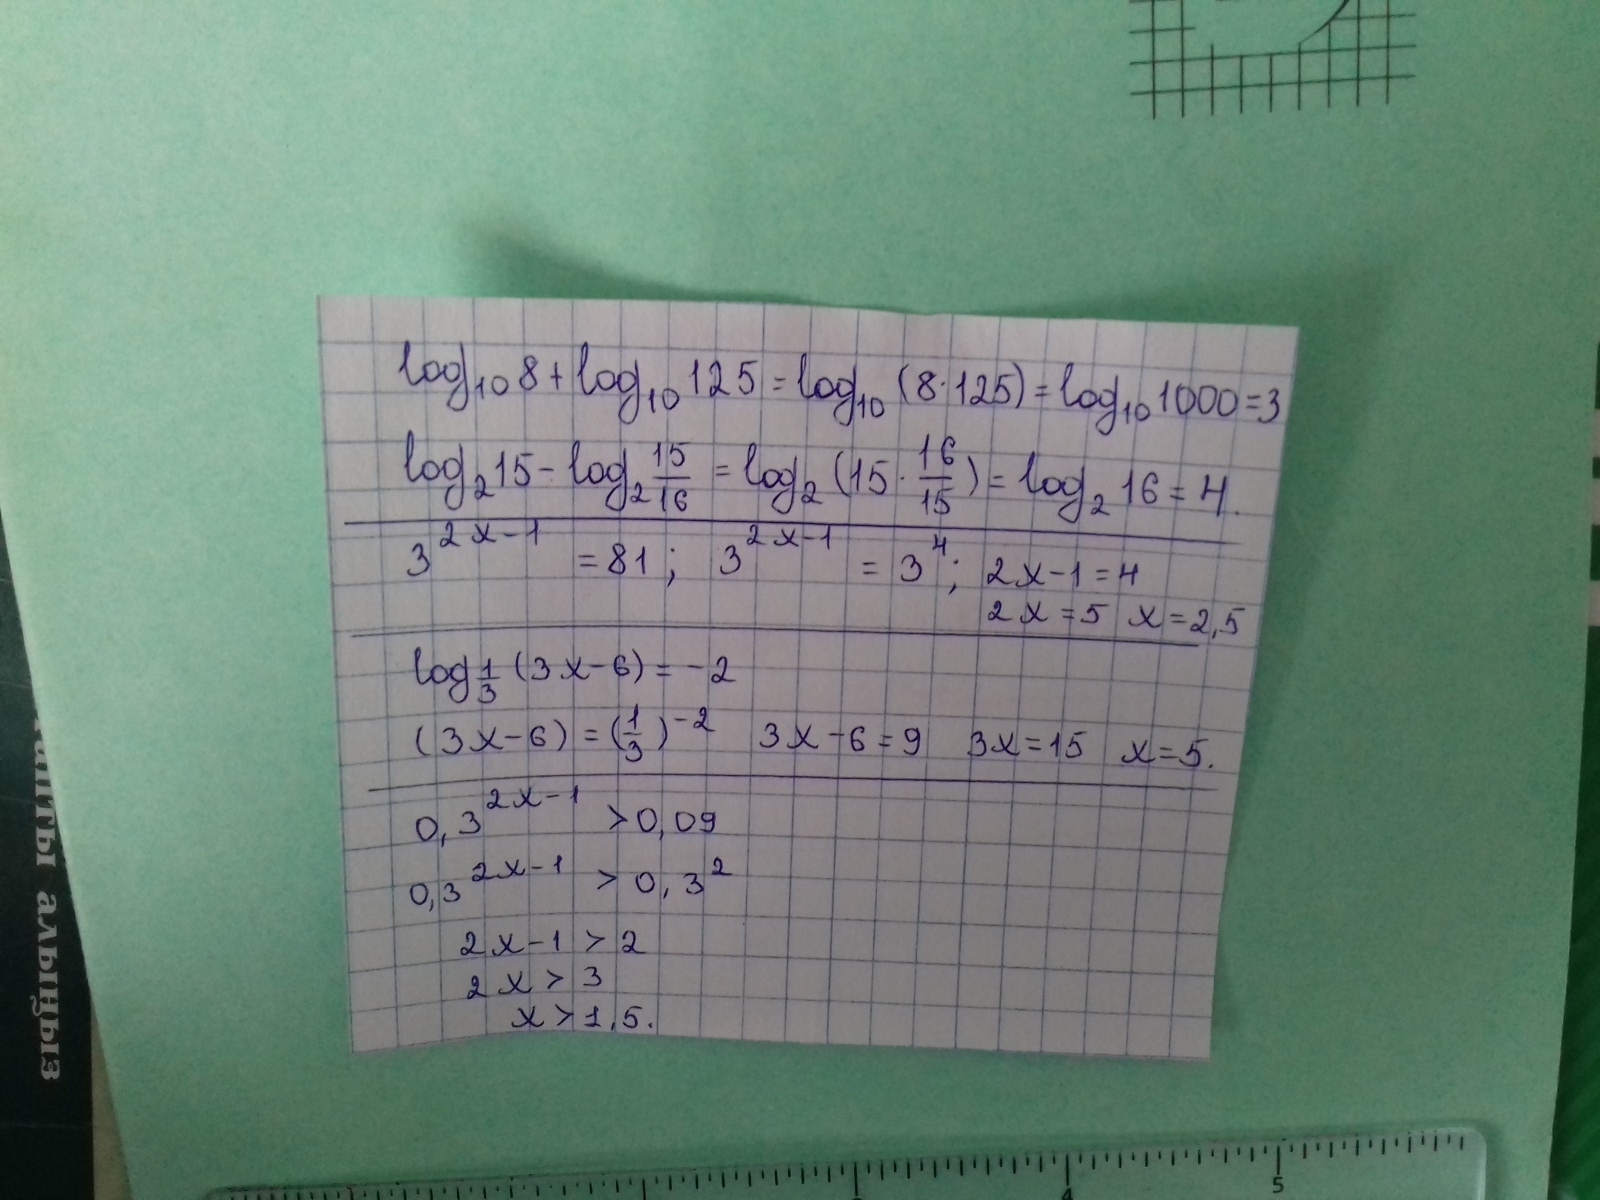 log₁₀8 + log₁₀125 = log₁₀(8·125) = log₁₀1000 = 3
log₂15 - log₂ 15/16 = log₂(15 · 16/15) = log₂16 = 4.
3^(2x-1) = 81; 3^(2x-1) = 3^4; 2x-1 = 4
2x = 5 x = 2,5
log_(1/3) (3x-6) = -2
(3x-6) = (1/3)^(-2) 3x-6 = 9 3x = 15 x = 5.
0,3^(2x-1) > 0,09
0,3^(2x-1) > 0,3^2
2x-1 > 2
2x > 3
x > 1,5.
алыңыз
4 5